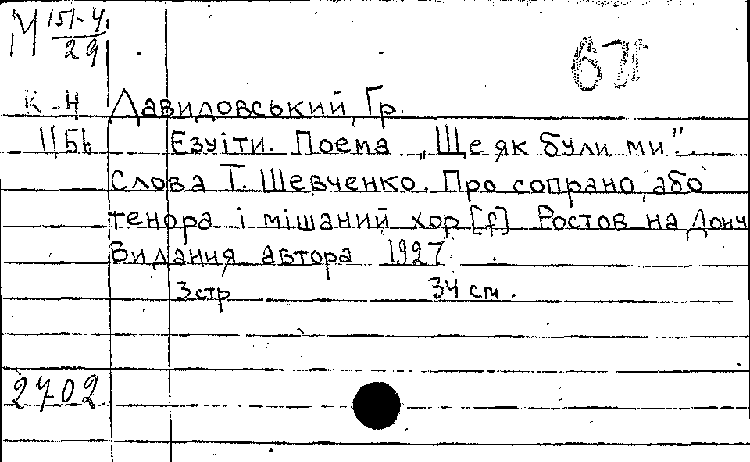 М 151-4
29
ВУ
К-Н Давидовський, Гр.
ІІБЬ Єзуіти. Поема „Ще як були ми"
Слова Т. Шевченко. Про сопрано або
тенора і мішаний хор [f] Ростов на Дону
Видання автора 1927
3 стр 34 см.
2702